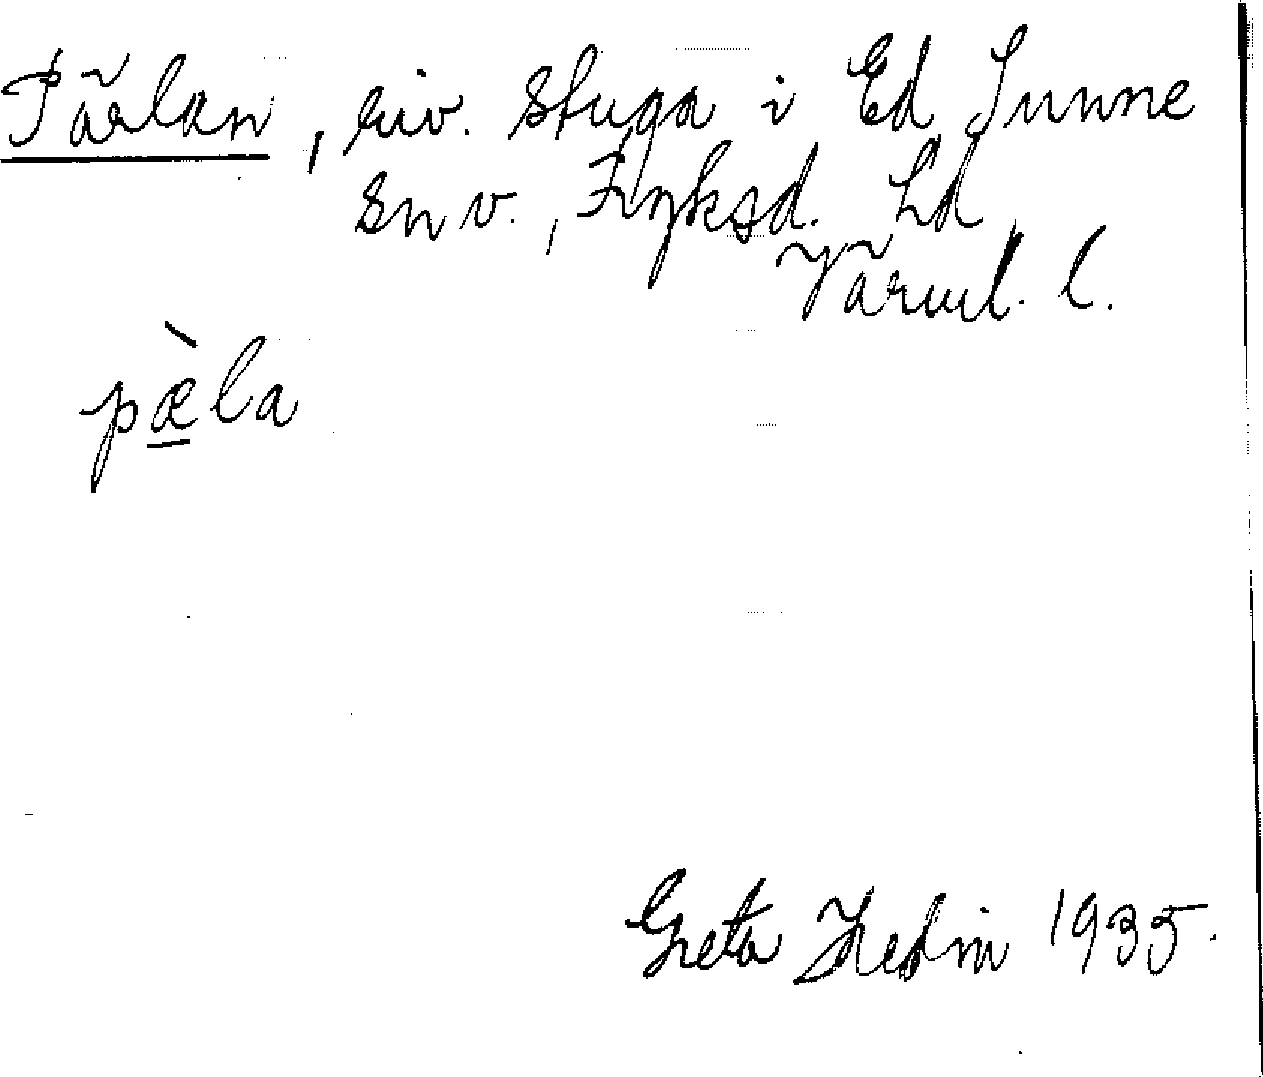 Pärlan, riv. stuga i Ed Sunne
sn v., Fryksd. hd
Värml. l.
pæ̀la
Greta Hedin 1935.